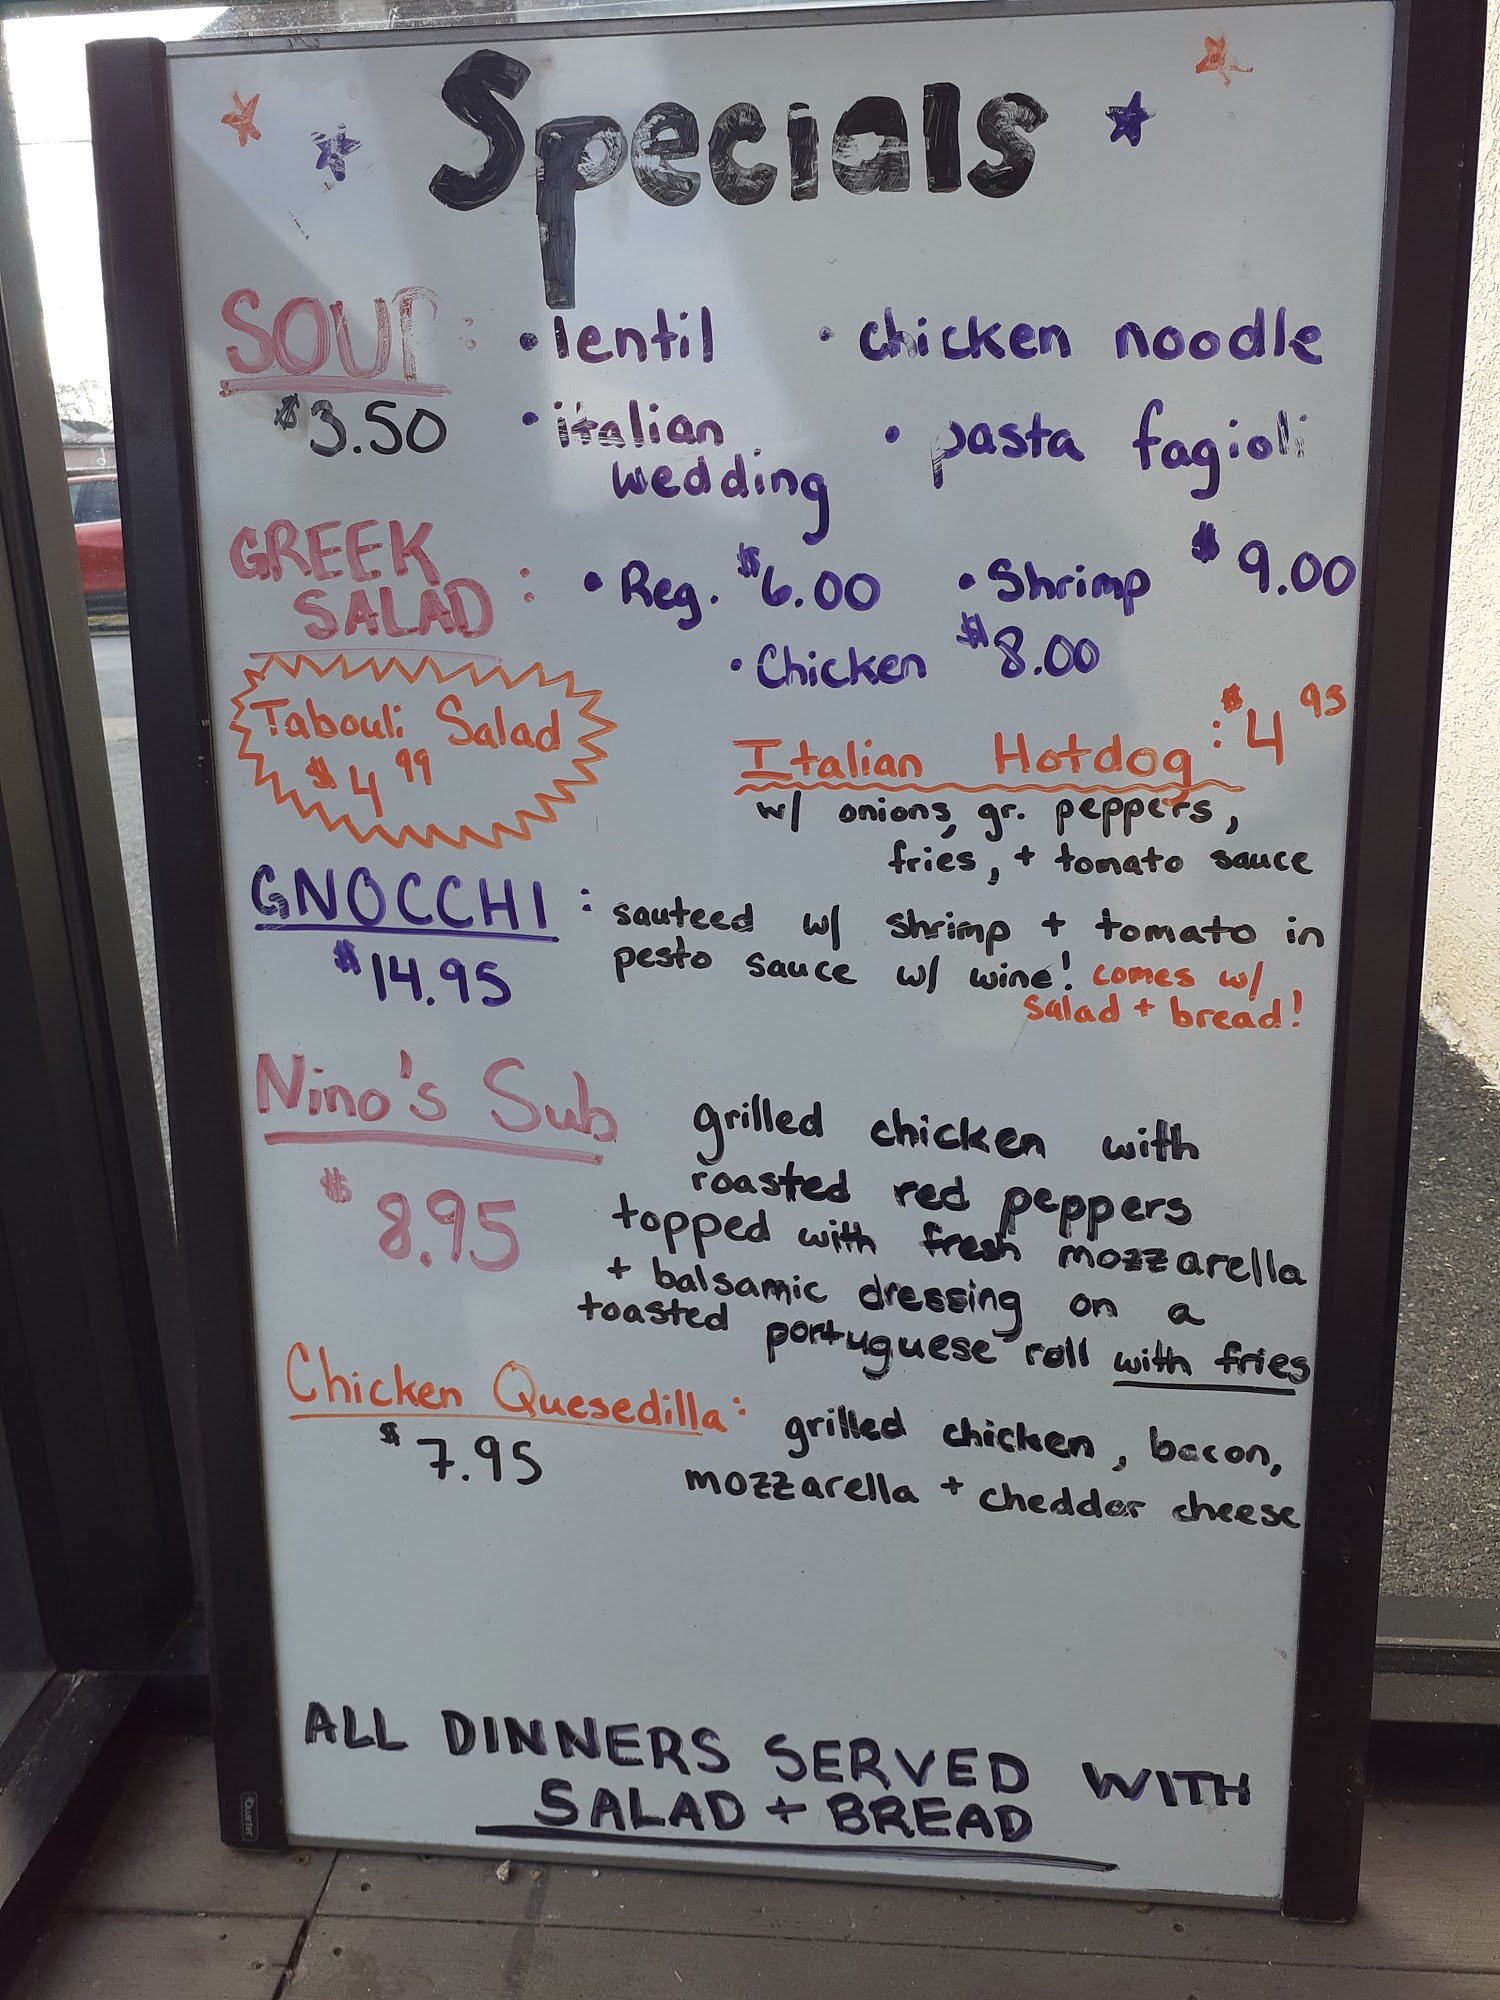 Specials
SOUP: • lentil • chicken noodle
$3.50 • italian wedding • pasta fagioli
GREEK SALAD: • Reg. $6.00 • Shrimp $9.00
• Chicken $8.00
Tabouli Salad
$4.99
Italian Hotdog: $4.95
w/ onions, gr. peppers,
fries, + tomato sauce
GNOCCHI: sauteed w/ shrimp + tomato in
$14.95 pesto sauce w/ wine! comes w/
salad + bread!
Nino's Sub
$8.95
grilled chicken with
roasted red peppers
topped with fresh mozzarella
+ balsamic dressing on a
toasted portuguese roll with fries
Chicken Quesedilla: grilled chicken, bacon,
$7.95 mozzarella + cheddar cheese
ALL DINNERS SERVED WITH
SALAD + BREAD
Quartet